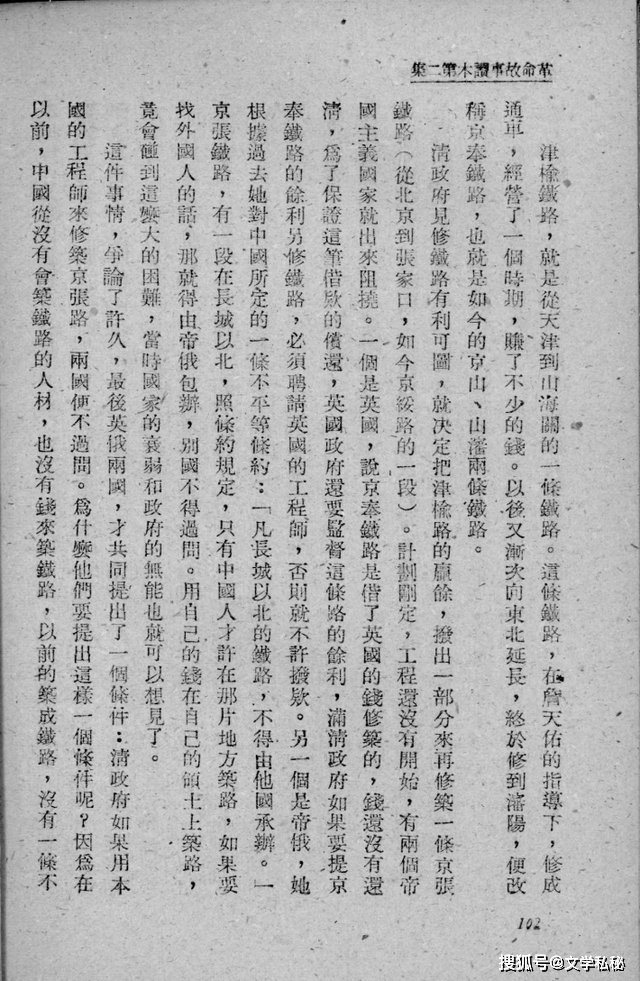 革命故事讀本第二集
津楡鐵路，就是從天津到山海關的一條鐵路。這條鐵路，在詹天佑的指導下，修成
通車，經營了一個時期，賺了不少的錢。以後又漸次向東北延長，終於修到瀋陽，便改
稱京奉鐵路，也就是如今的京山、山瀋兩條鐵路。
清政府見修鐵路有利可圖，就決定把津楡路的贏餘，撥出一部分來再修築一條京張
鐵路（從北京到張家口，如今京綏路的一段）。計劃剛定，工程還沒有開始，有兩個帝
國主義國家就出來阻撓。一個是英國，說京奉鐵路是借了英國的錢修築的，錢還沒有還
淸，爲了保證這筆借欵的償還，英國政府還要監督這條路的餘利，滿淸政府如果要提京
奉鐵路的餘利另修鐵路，必須聘請英國的工程師，否則就不許撥欵。另一個是帝俄，她
根據過去她對中國所定的一條不平等條約：「凡長城以北的鐵路，不得由他國承辦。」
京張鐵路，有一段在長城以北，照條約規定，只有中國人才許在那片地方築路，如果要
找外國人的話，那就得由帝俄包辦，別國不得過問。用自己的錢在自己的領土上築路，
竟會碰到這麼大的困難，當時國家的衰弱和政府的無能也就可以想見了。
這件事情，爭論了許久，最後英俄兩國，才共同提出了一個條件：淸政府如果用本
國的工程師來修築京張路，兩國便不過問。爲什麼他們要提出這樣一個條件呢？因爲在
以前，中國從沒有會築鐵路的人材，也沒有錢來築鐵路，以前的築成鐵路，沒有一條不
102
搜狐号@文学私秘